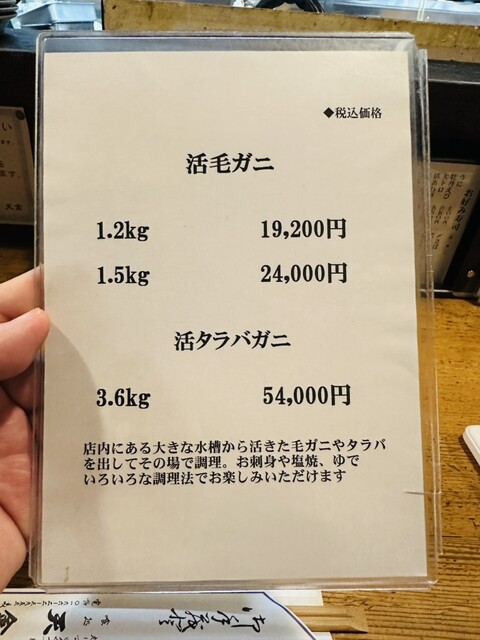 ◆税込価格
活毛ガニ
1.2kg 19,200円
1.5kg 24,000円
活タラバガニ
3.6kg 54,000円
店内にある大きな水槽から活きた毛ガニやタラバ
を出してその場で調理。お刺身や塩焼、ゆで
いろいろな調理法でお楽しみいただけます
お好み寿司
天金